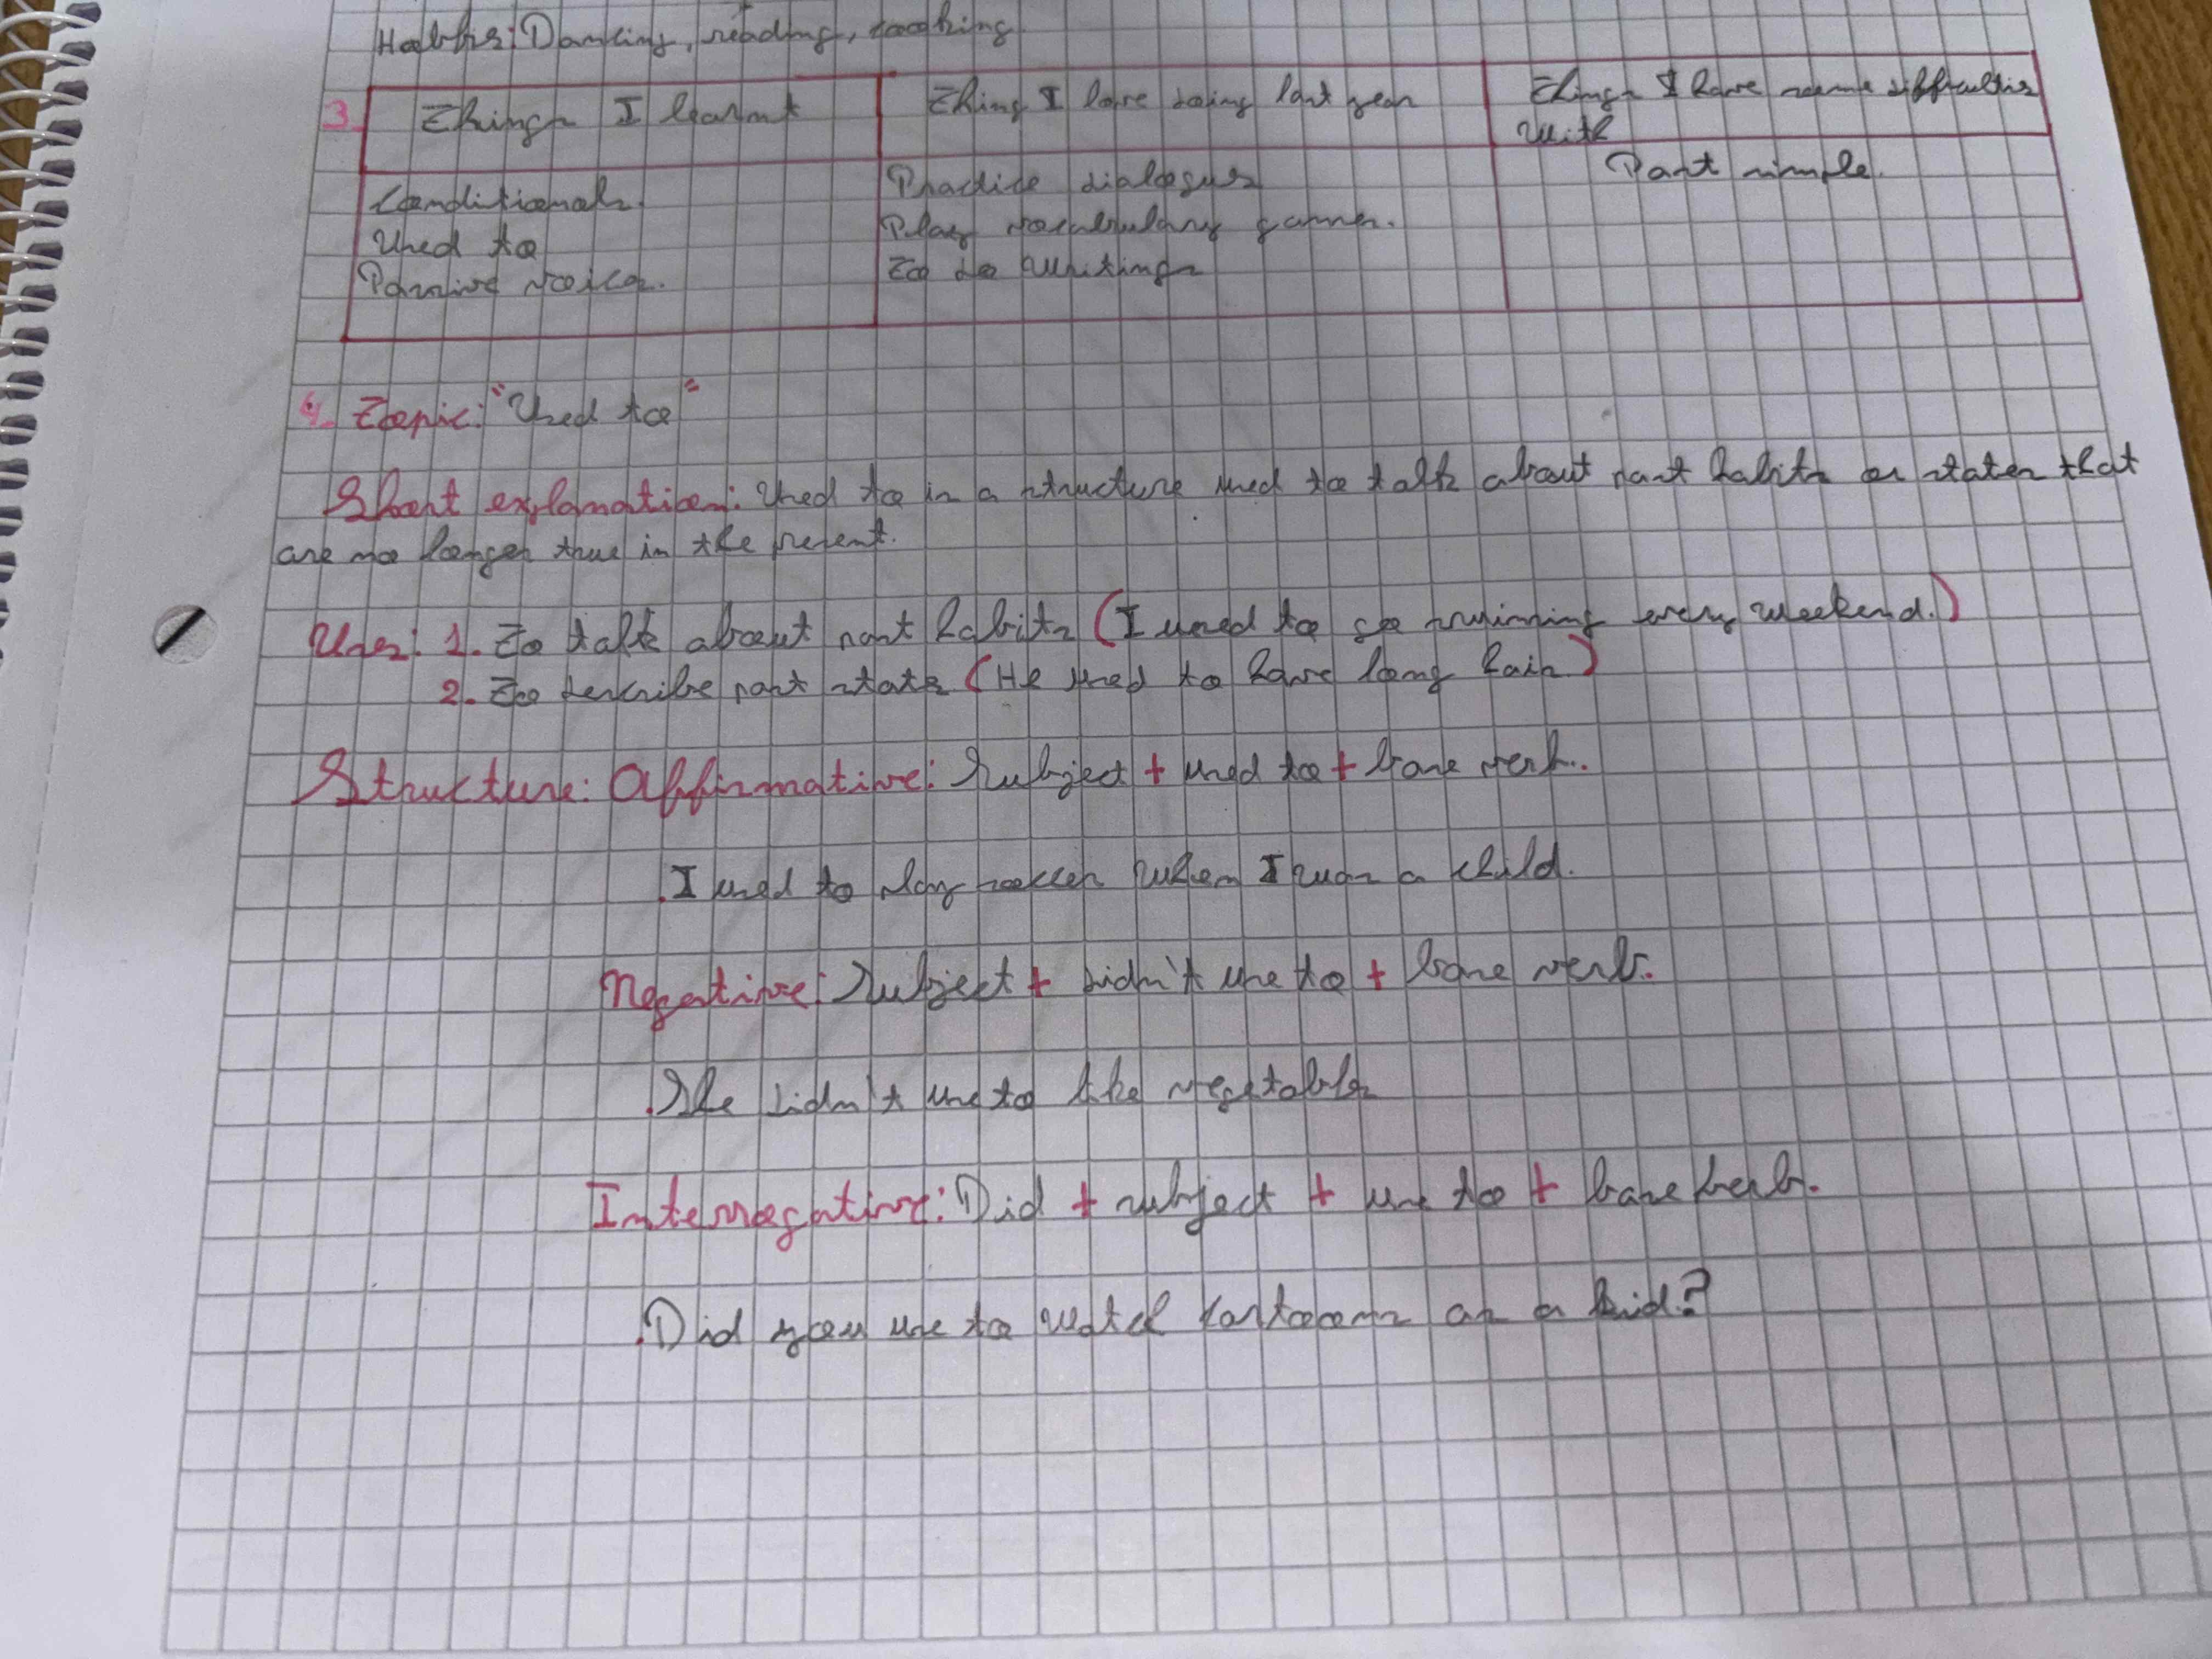 Hobbis: Dancing, reading, cooking
3. Things I learnt
Thing I love doing last year
Things I have some difficulties
with
Conditionals.
Used to
Passive voice.
Practice dialogues
Play vocabulary games.
To do writings
Past simple.
4. Topic: "Used to"
Short explanation: Used to is a structure used to talk about past habits or states that
are no longer true in the present.
Uses: 1. To talk about past habits (I used to go running every weekend.)
2. To describe past states (He used to have long hair)
Structure: Affirmative: Subject + used to + bare verb.
.I used to play soccer when I was a child.
Negative: Subject + didn't use to + bare verb.
.She didn't use to like vegetables
Interrogative: Did + subject + use to + bare verb.
.Did you use to watch cartoons as a kid?